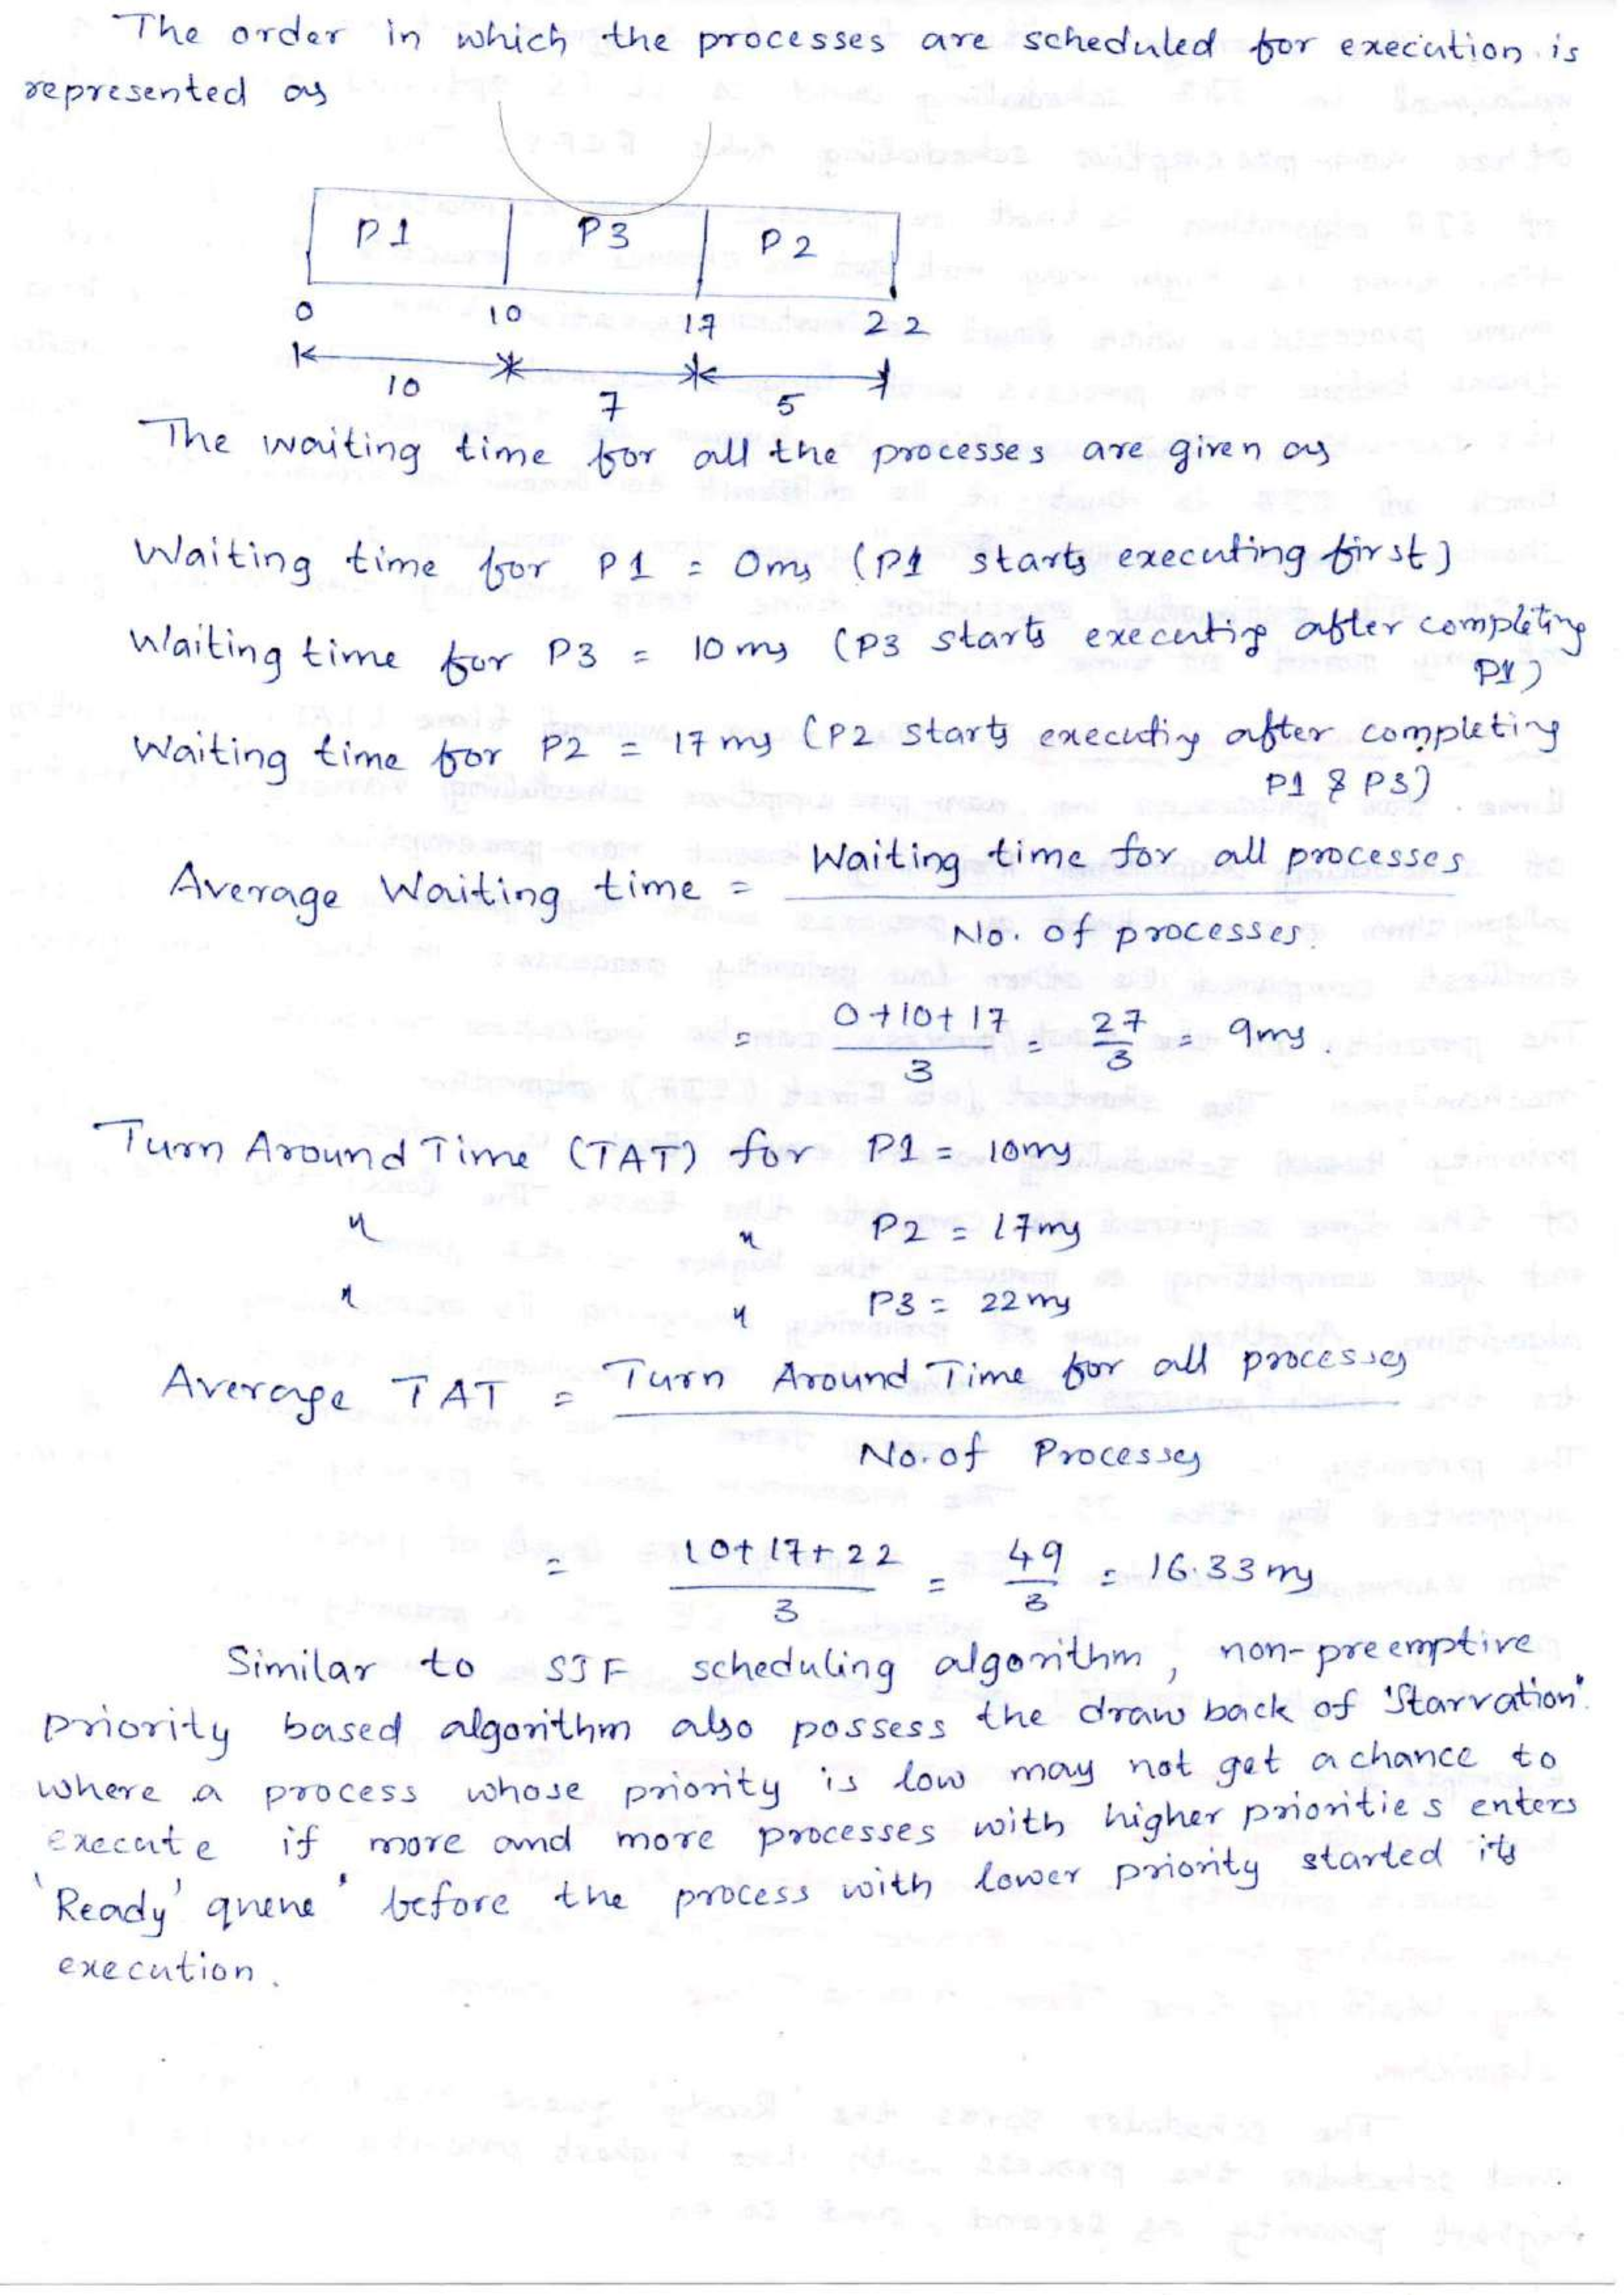 The order in which the processes are scheduled for execution is
represented as
P1 P3 P2
0 10 17 22
10 7 5
The waiting time for all the processes are given as
Waiting time for P1 = 0ms (P1 starts executing first)
Waiting time for P3 = 10 ms (P3 starts executing after completing
P1)
Waiting time for P2 = 17 ms (P2 starts executing after completing
P1 & P3)
Average Waiting time = Waiting time for all processes
No. of processes.
= 0+10+17 / 3 = 27 / 3 = 9ms.
Turn Around Time (TAT) for P1 = 10ms
" " P2 = 17ms
" " P3 = 22ms
Average TAT = Turn Around Time for all processes
No. of Processes
= 10+17+22 / 3 = 49 / 3 = 16.33 ms
Similar to SJF scheduling algorithm, non-preemptive
priority based algorithm also possess the draw back of 'Starvation'.
where a process whose priority is low may not get a chance to
execute if more and more processes with higher priorities enters
'Ready' queue' before the process with lower priority started its
execution.